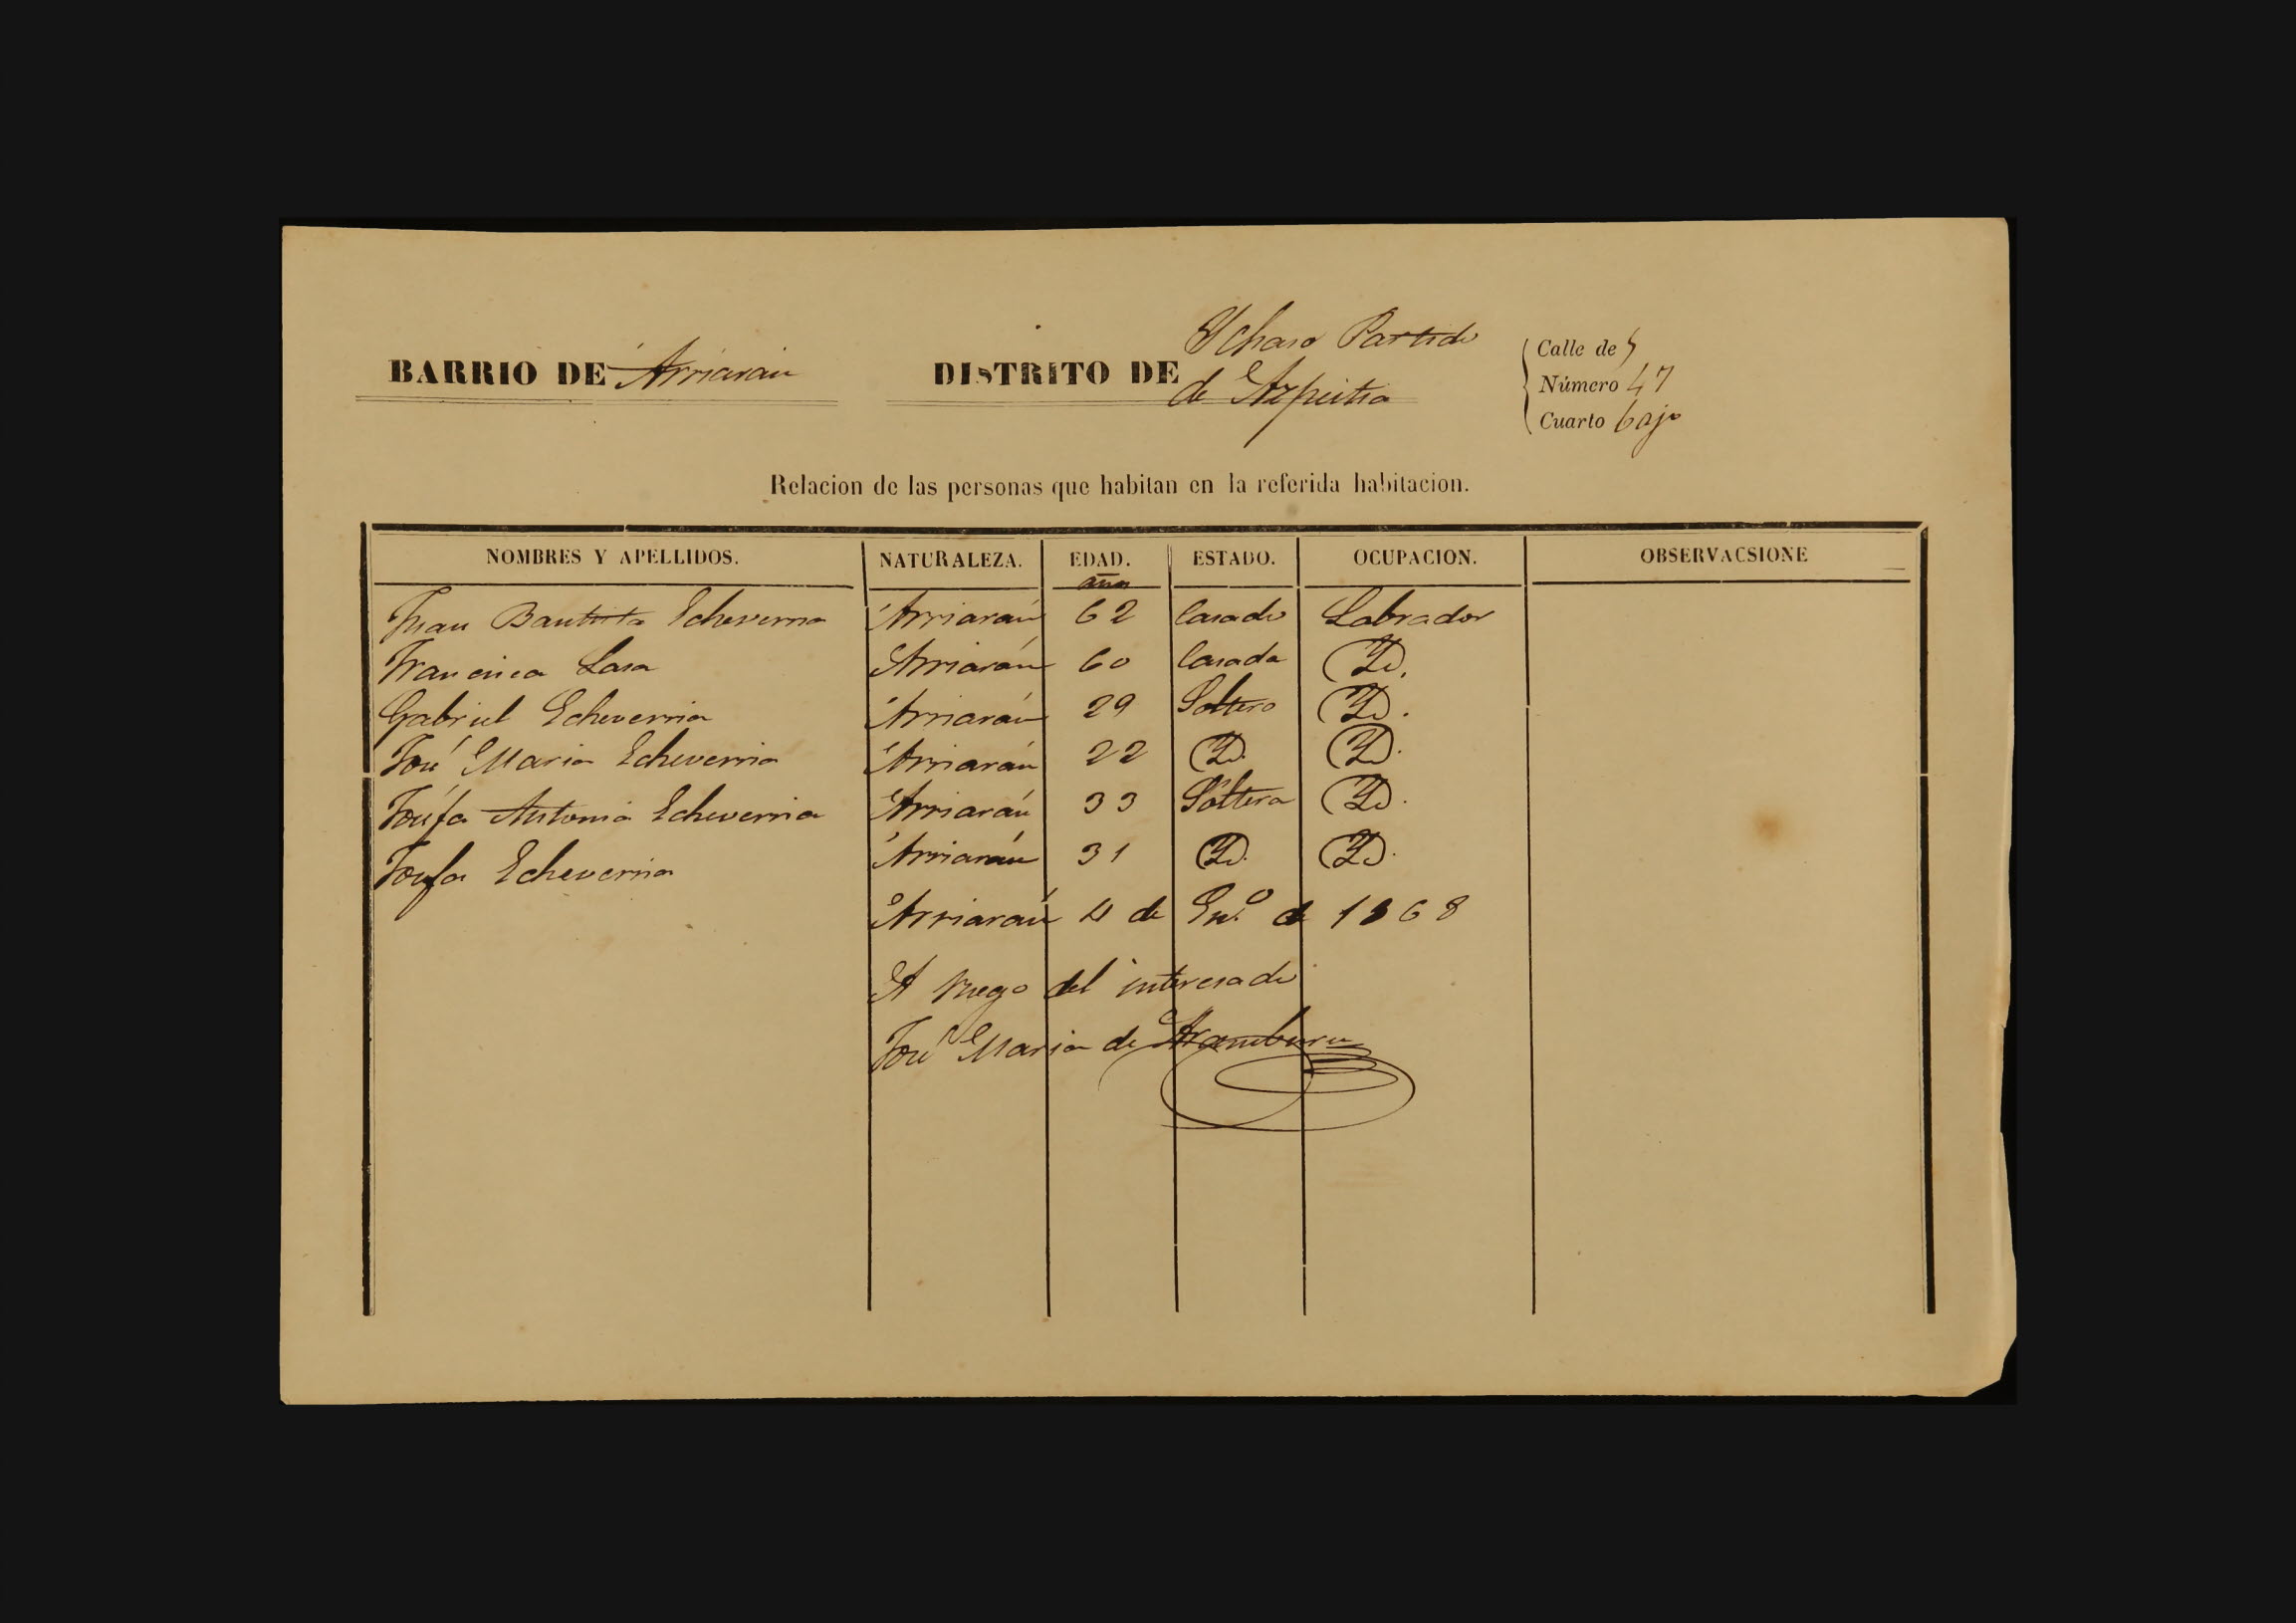 BARRIO DE Arriarán
DISTRITO DE Ychaso Partido
de Azpeitia
Calle de
Número 47
Cuarto bajo
Relacion de las personas que habitan en la referida habitacion.
NOMBRES Y APELLIDOS. NATURALEZA. EDAD. ESTADO. OCUPACION. OBSERVACSIONE
años
Juan Bautista Echeverria Arriarán 62 Casado Labrador
Francisca Lasa Arriarán 60 Casada Yd.
Gabriel Echeverria Arriarán 29 Soltero Yd.
José Maria Echeverria Arriarán 22 Yd. Yd.
Josefa Antonia Echeverria Arriarán 33 Soltera Yd.
Josefa Echeverria Arriarán 31 Yd. Yd.
Arriarán 4 de En.º de 1868
A ruego del interesado
José Maria de Aramburu